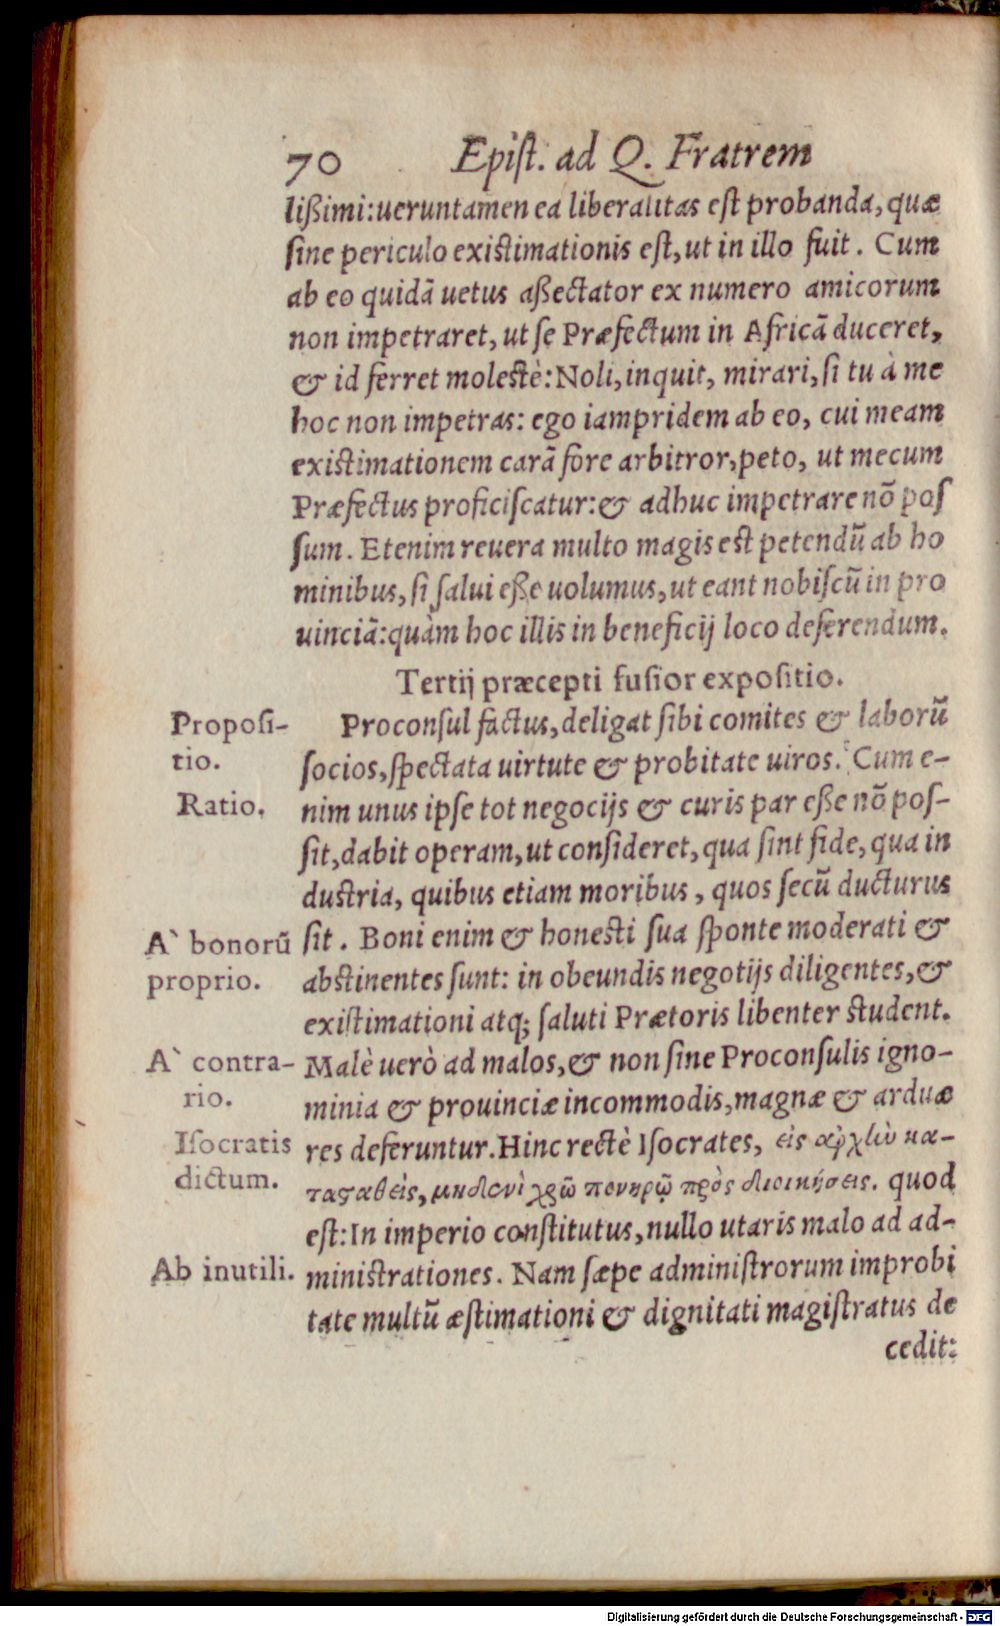 70 Epist. ad Q. Fratrem
lißimi: ueruntamen ea liberalitas est probanda, quæ
sine periculo existimationis est, ut in illo fuit. Cum
ab eo quidã uetus aßectator ex numero amicorum
non impetraret, ut se Præfectum in Africã duceret,
& id ferret molestè: Noli, inquit, mirari, si tu à me
hoc non impetras: ego iampridem ab eo, cui meam
existimationem carã fore arbitror, peto, ut mecum
Præfectus proficiscatur: & adhuc impetrare nõ pos
sum. Etenim reuera multo magis est petendũ ab ho
minibus, si salui eße uolumus, ut eant nobiscũ in pro
uinciã: quàm hoc illis in beneficij loco deferendum.
Tertij præcepti fusior expositio.
Proposi-
tio.
Proconsul factus, deligat sibi comites & laborũ
socios, spectata uirtute & probitate uiros. Cum e-
Ratio.
nim unus ipse tot negocijs & curis par eße nõ pos-
sit, dabit operam, ut consideret, qua sint fide, qua in
dustria, quibus etiam moribus, quos secũ ducturus
A` bonorũ
proprio.
sit. Boni enim & honesti sua sponte moderati &
abstinentes sunt: in obeundis negotijs diligentes, &
existimationi atq; saluti Prætoris libenter student.
A` contra-
rio.
Malè uerò ad malos, & non sine Proconsulis igno-
minia & prouinciæ incommodis, magnæ & arduæ
Isocratis
dictum.
res deferuntur. Hinc rectè Isocrates, εἰς ἀρχὴν κα-
τασαθεὶς, μηδενὶ χρῶ πονηρῷ πρὸς διοικήσεις. quod
est: In imperio constitutus, nullo utaris malo ad ad-
Ab inutili.
ministrationes. Nam sæpe administrorum improbi
tate multũ æstimationi & dignitati magistratus de
cedit:
Digitalisierung gefördert durch die Deutsche Forschungsgemeinschaft - DFG